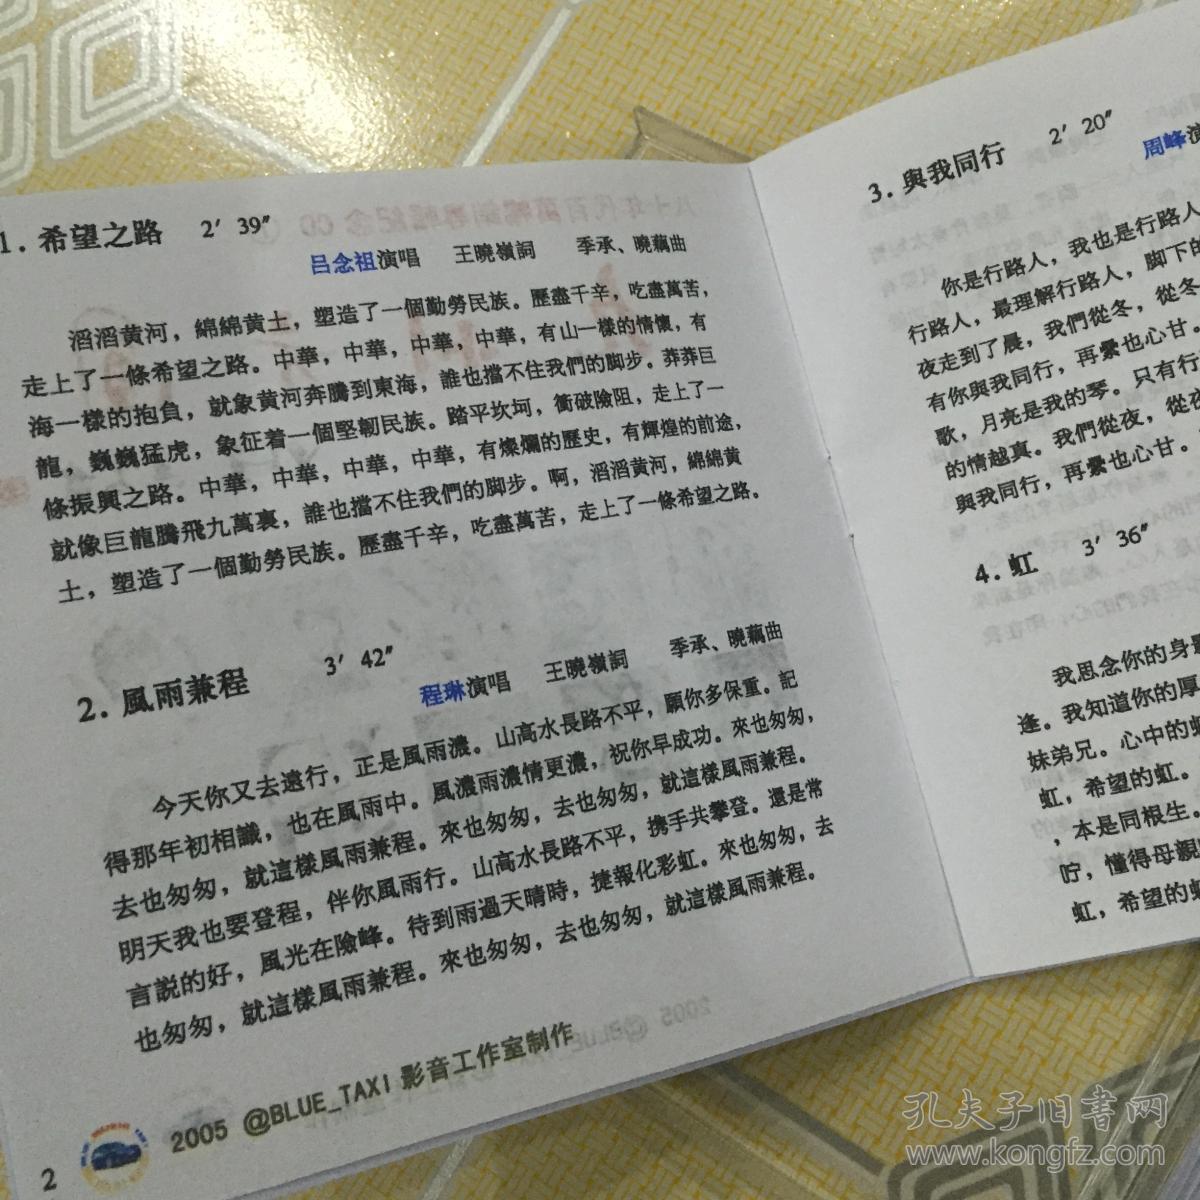 1. 希望之路 2′ 39″
吕念祖演唱 王曉嶺詞 季承、曉藕曲
滔滔黄河，綿綿黄土，塑造了一個勤勞民族。歷盡千辛，吃盡萬苦，
走上了一條希望之路。中華，中華，中華，中華，有山一樣的情懷，有
海一樣的抱負，就象黄河奔騰到東海，誰也擋不住我們的脚步。莽莽巨
龍，巍巍猛虎，象征着一個堅韌民族。踏平坎坷，衝破險阻，走上了一
條振興之路。中華，中華，中華，中華，有燦爛的歷史，有輝煌的前途，
就像巨龍騰飛九萬裏，誰也擋不住我們的脚步。啊，滔滔黄河，綿綿黄
土，塑造了一個勤勞民族。歷盡千辛，吃盡萬苦，走上了一條希望之路。
2. 風雨兼程 3′ 42″
程琳演唱 王曉嶺詞 季承、曉藕曲
今天你又去遠行，正是風雨濃。山高水長路不平，願你多保重。記
得那年初相識，也在風雨中。風濃雨濃情更濃，祝你早成功。來也匆匆，
去也匆匆，就這樣風雨兼程。來也匆匆，去也匆匆，就這樣風雨兼程。
明天我也要登程，伴你風雨行。山高水長路不平，携手共攀登。還是常
言説的好，風光在險峰。待到雨過天晴時，捷報化彩虹。來也匆匆，去
也匆匆，就這樣風雨兼程。來也匆匆，去也匆匆，就這樣風雨兼程。
2005 @BLUE_TAXI 影音工作室制作
2
3. 與我同行 2′ 20″
周峰演
你是行路人，我也是行路人
行路人，最理解行路人，脚下的
夜走到了晨，我們從冬，從冬
有你與我同行，再纍也心甘。
歌，月亮是我的琴。只有行
的情越真。我們從夜，從夜
與我同行，再纍也心甘。
4. 虹 3′ 36″
我思念你的身
逢。我知道你的厚
妹弟兄。心中的虹
虹，希望的虹。
，本是同根生。
咛，懂得母親
虹，希望的虹
孔夫子旧書网
www.kongfz.com